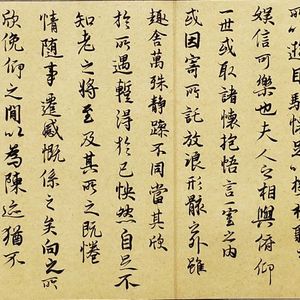 所以遊目騁懷足以極視聽之
娛信可樂也夫人之相與俯仰
一世或取諸懷抱悟言一室之內
或因寄所託放浪形骸之外雖
趣舍萬殊靜躁不同當其欣
於所遇暫得於己怏然自足不
知老之將至及其所之既惓
情隨事遷感慨係之矣向之所
欣俛仰之間以為陳迹猶不